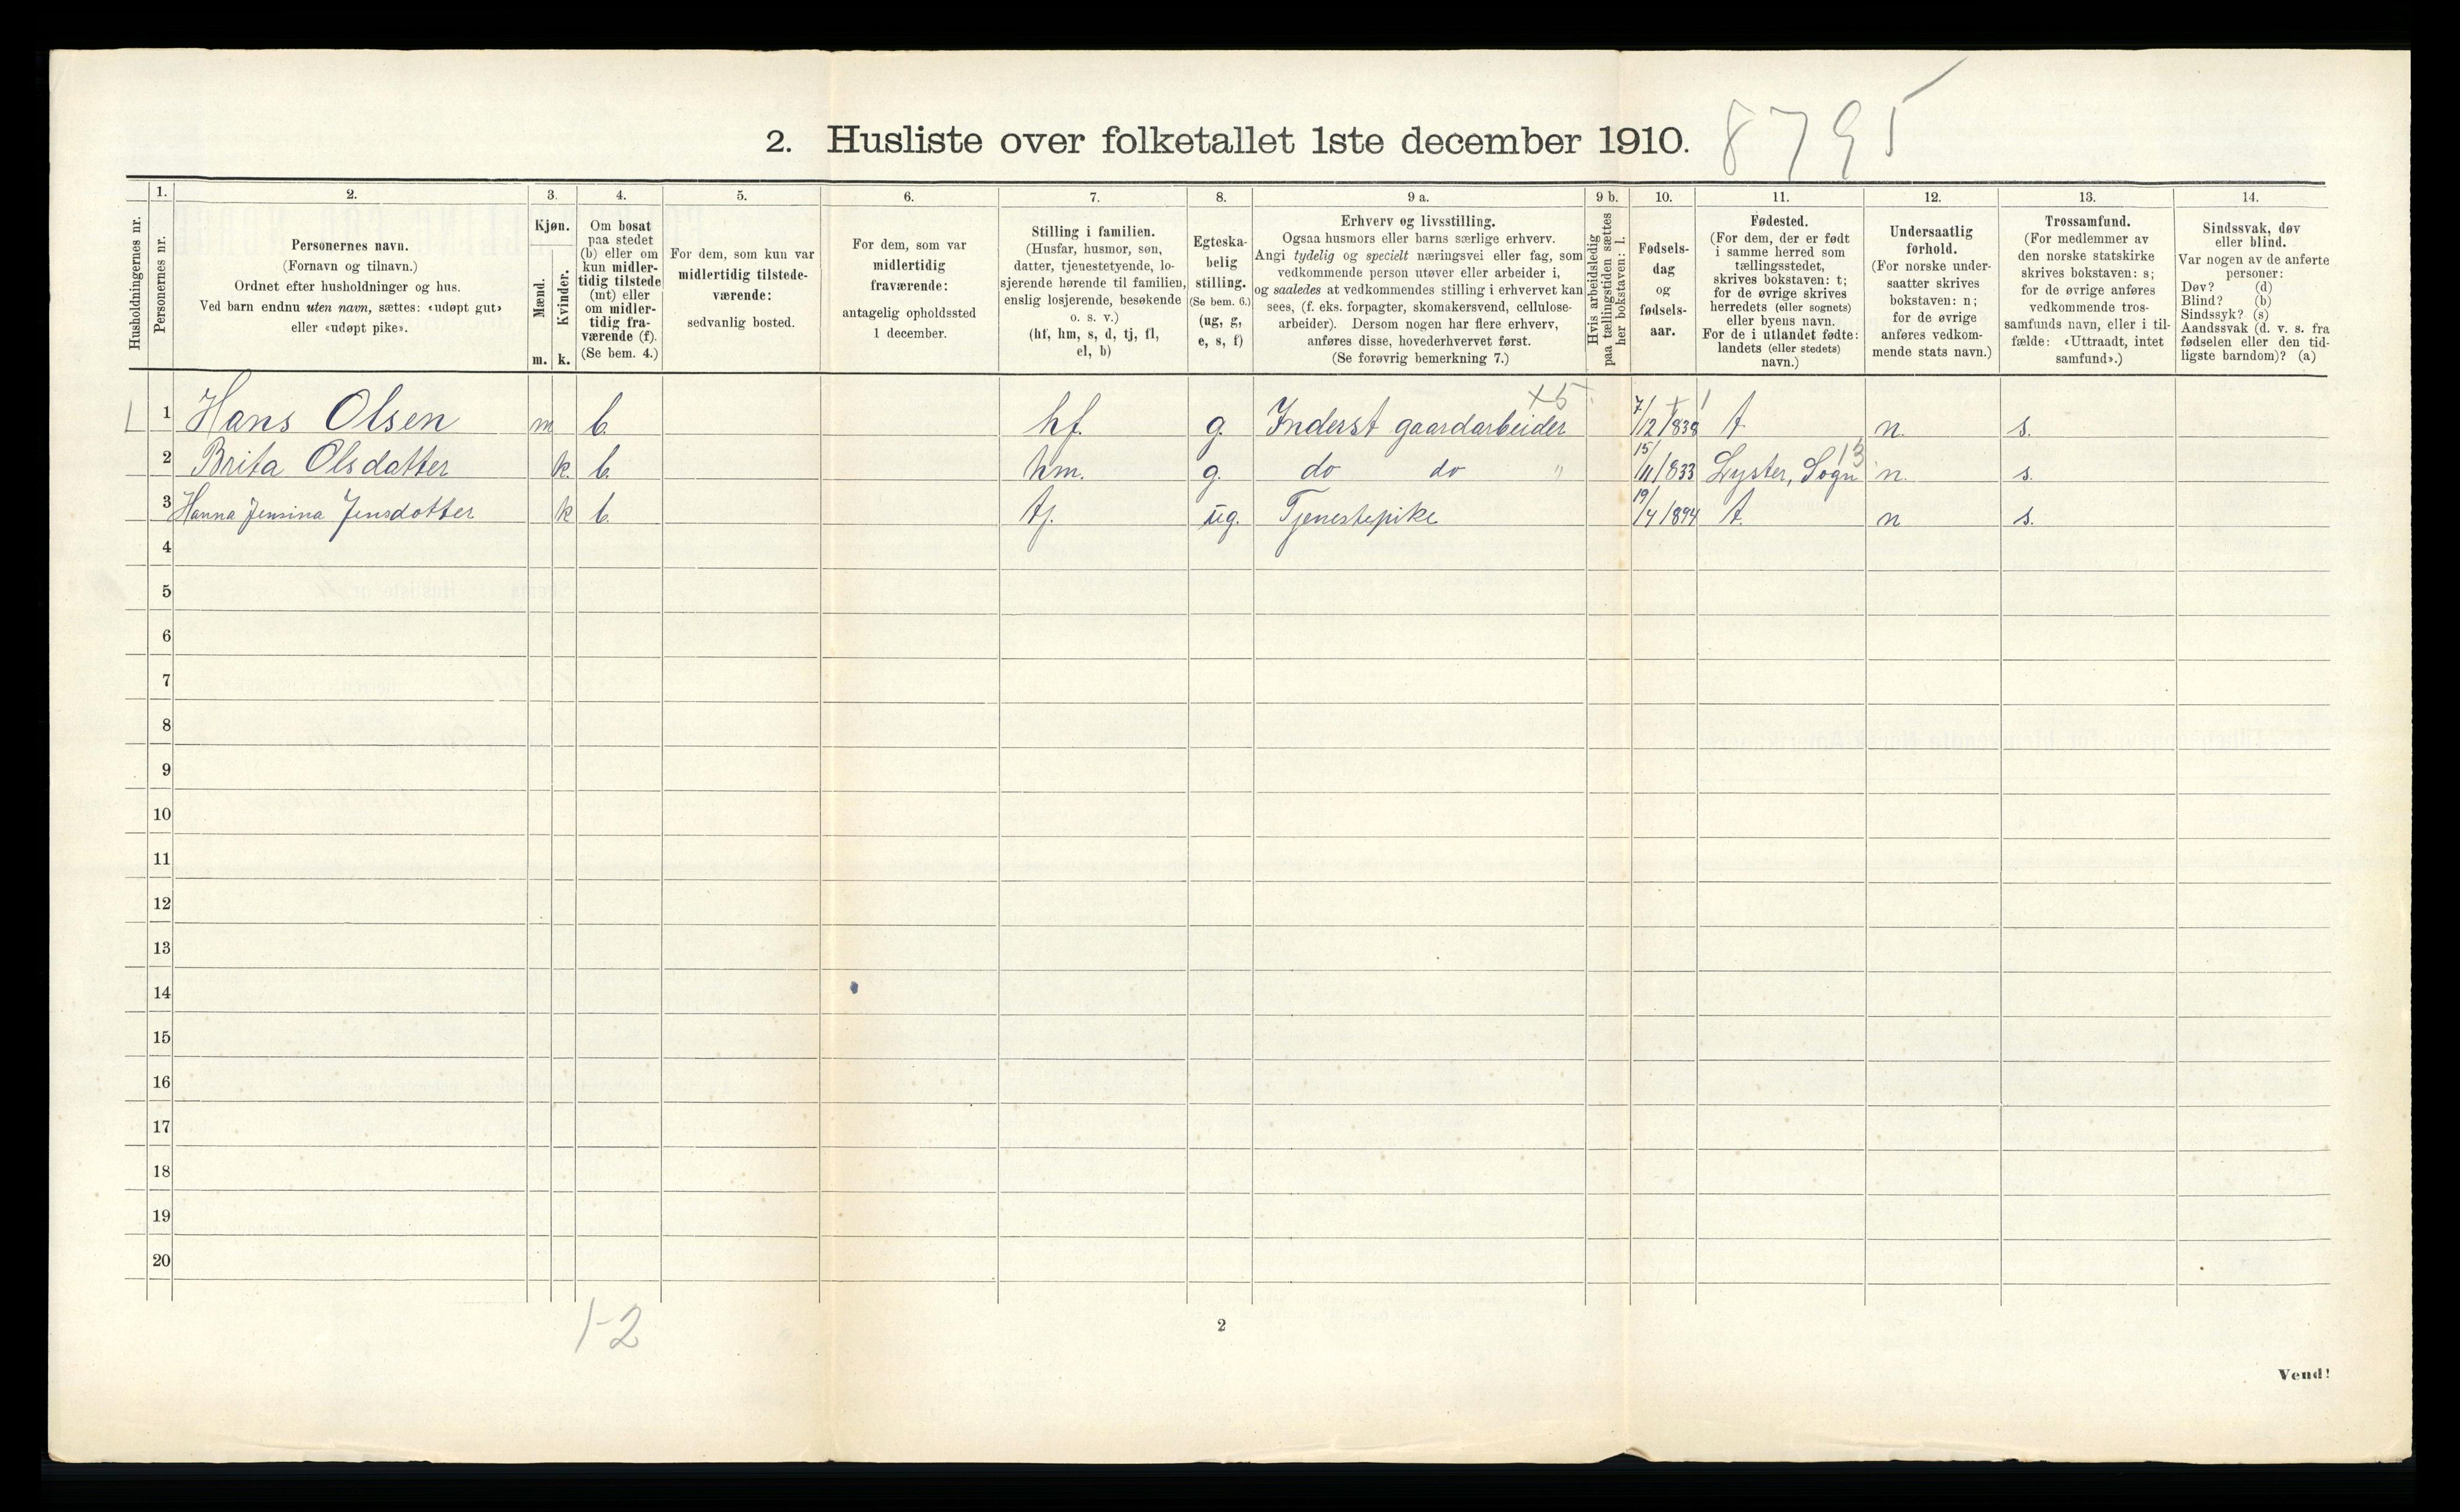 2. Husliste over folketallet 1ste december 1910. 8795
Husholdningernes nr.
1.
Personernes nr.
2.
Personernes navn.
(Fornavn og tilnavn.)
Ordnet efter husholdninger og hus.
Ved barn endnu uten navn, sættes: «udøpt gut»
eller «udøpt pike».
3.
Kjøn.
Mænd.
Kvinder.
m. k.
4.
Om bosat
paa stedet
(b) eller om
kun midler-
tidig tilstede
(mt) eller
om midler-
tidig fra-
værende (f).
(Se bem. 4.)
5.
For dem, som kun var
midlertidig tilstede-
værende:
sedvanlig bosted.
6.
For dem, som var
midlertidig
fraværende:
antagelig opholdssted
1 december.
7.
Stilling i familien.
(Husfar, husmor, søn,
datter, tjenestetyende, lo-
sjerende hørende til familien,
enslig losjerende, besøkende
o. s. v.)
(hf, hm, s, d, tj, fl,
el, b)
8.
Egteska-
belig
stilling.
(Se bem. 6.)
(ug, g,
e, s, f)
9 a.
Erhverv og livsstilling.
Ogsaa husmors eller barns særlige erhverv.
Angi tydelig og specielt næringsvei eller fag, som
vedkommende person utøver eller arbeider i,
og saaledes at vedkommendes stilling i erhvervet kan
sees, (f. eks. forpagter, skomakersvend, cellulose-
arbeider). Dersom nogen har flere erhverv,
anføres disse, hovederhvervet først.
(Se forøvrig bemerkning 7.)
9 b.
Hvis arbeidsledig
paa tællingstiden sættes
her bokstaven: l.
10.
Fødsels-
dag
og
fødsels-
aar.
11.
Fødested.
(For dem, der er født
i samme herred som
tællingsstedet,
skrives bokstaven: t;
for de øvrige skrives
herredets (eller sognets)
eller byens navn.
For de i utlandet fødte:
landets (eller stedets)
navn.)
12.
Undersaatlig
forhold.
(For norske under-
saatter skrives
bokstaven: n;
for de øvrige
anføres vedkom-
mende stats navn.)
13.
Trossamfund.
(For medlemmer av
den norske statskirke
skrives bokstaven: s;
for de øvrige anføres
vedkommende tros-
samfunds navn, eller i til-
fælde: «Uttraadt, intet
samfund».)
14.
Sindssvak, døv
eller blind.
Var nogen av de anførte
personer:
Døv? (d)
Blind? (b)
Sindssyk? (s)
Aandssvak (d. v. s. fra
fødselen eller den tid-
ligste barndom)? (a)
1 Hans Olsen m b. hf. g. Inderst gaardarbeider 7/12 1838 t. n. s.
2 Brita Olsdatter k. b. hm. g. do do " 15/11 1833 Lyster, Sogn n. s.
3 Hanna Jensina Jensdotter k b. tj. ug. Tjenestepike 19/4 1894 t. n s.
4
5
6
7
8
9
10
11
12
13
14
15
16
17
18
19
20
1-2
2
Vend!